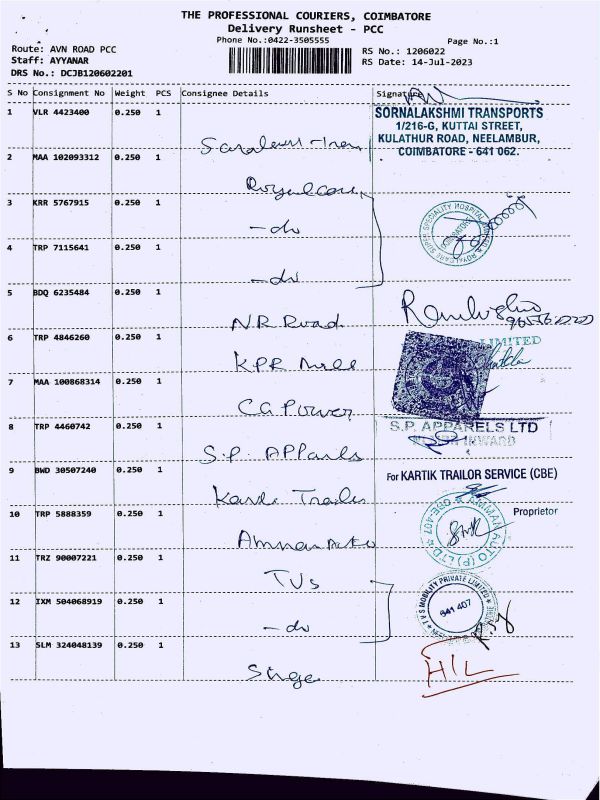 THE PROFESSIONAL COURIERS, COIMBATORE
Delivery Runsheet - PCC
Phone No.:0422-3505555
Page No.:1
Route: AVN ROAD PCC
Staff: AYYANAR
DRS No.: DCJB120602201
RS No.: 1206022
RS Date: 14-Jul-2023
S No Consignment No Weight PCS Consignee Details Signature
1 VLR 4423400 0.250 1
SORNALAKSHMI TRANSPORTS
1/216-G, KUTTAI STREET,
KULATHUR ROAD, NEELAMBUR,
COIMBATORE - 641 062.
2 MAA 102093312 0.250 1
Royalcare
3 KRR 5767915 0.250 1
-do
4 TRP 7115641 0.250 1
-do
5 BDQ 6235484 0.250 1
N.R. Road
6 TRP 4846260 0.250 1
LIMITED
KPR Mill
7 MAA 100868314 0.250 1
CG Power
8 TRP 4460742 0.250 1
S.P. APPARELS LTD
INWARD
S.P. APParels
9 BWD 30507240 0.250 1
For KARTIK TRAILOR SERVICE (CBE)
Proprietor
10 TRP 5888359 0.250 1
AMMAN AUTO (P) LTD
CBE-407
Amman Auto
11 TRZ 90007221 0.250 1
TVS
12 IXM 504068919 0.250 1
MOBILITY PRIVATE LIMITED
641 407
-do
13 SLM 324048139 0.250 1
H/L